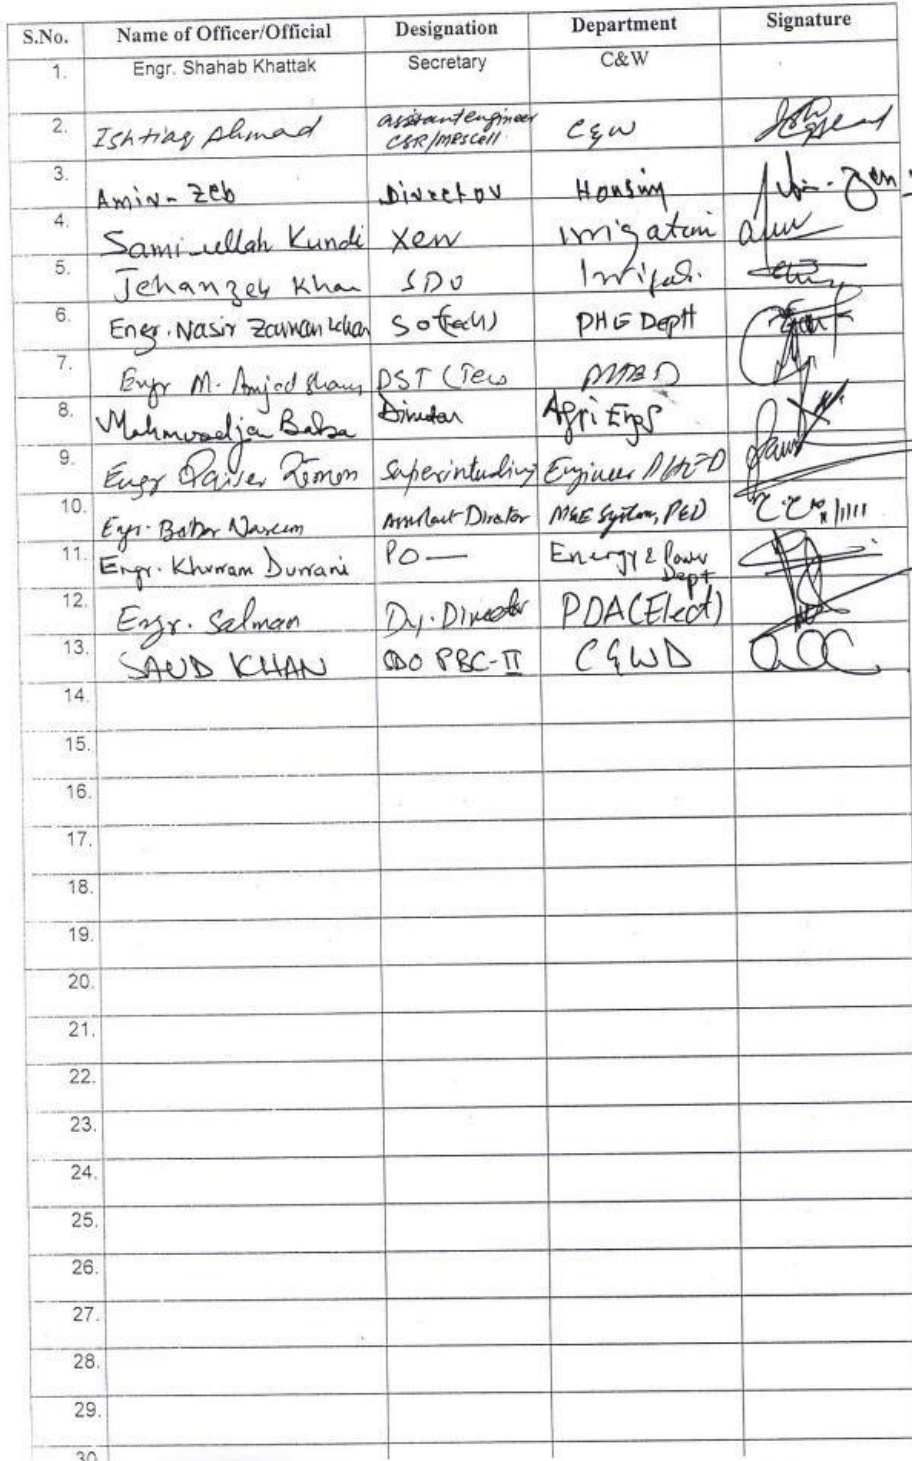 S.No. Name of Officer/Official Designation Department Signature
1. Engr. Shahab Khattak Secretary C&W
2. Ishtiaq Ahmad assistant engineer CSR/MRS cell C&W
3. Amir-Zeb Director Housing
4. Sami-ullah Kundi Xen Irrigation
5. Jehanzeb Khan SDO Irrigati.
6. Engr. Nasir Zaman Khan SO (Tech) PHE Deptt
7. Engr M. Amjad
8. Baba Director Agri Engg
9. Engr Superintending Engineer
10. Egr. Babar Naseem Assistant Director M&E System, PED
11. Engr. Khurram Durrani PO — Energy & Power Dept
12. Engr. Salman Dy. Director PDA (Elect)
13. SAUD KHAN SDO PBC-II C&WD
14.
15.
16.
17.
18.
19.
20.
21.
22.
23.
24.
25.
26.
27.
28.
29.
30.